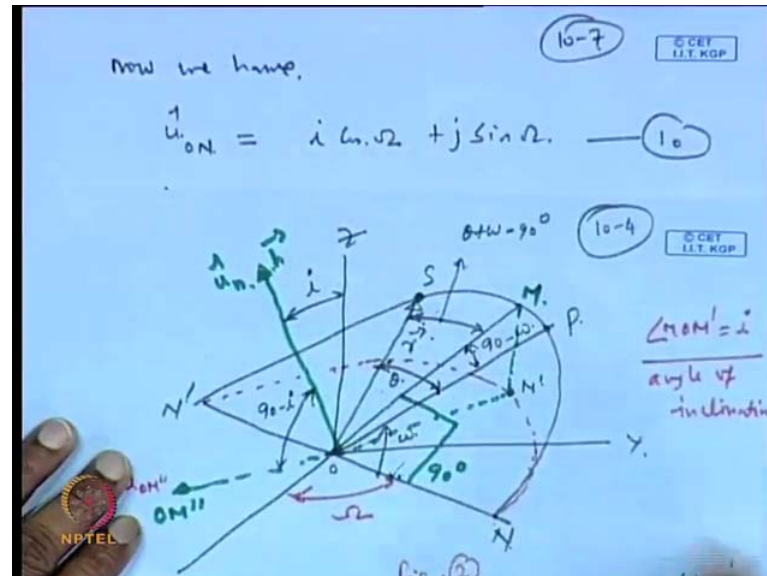 10-7
© CET
I.I.T. KGP
Now we have,
û ON = i Cos Ω + j Sin Ω. — 10
Z
θ+ω-90°
10-4
© CET
I.I.T. KGP
û n. h
i
S
M.
P.
r
90-ω.
∠MOM' = i
angle of inclination
N'
90-i
θ.
M'
ω.
Y.
O
OM"
90°
Ω
N
NPTEL